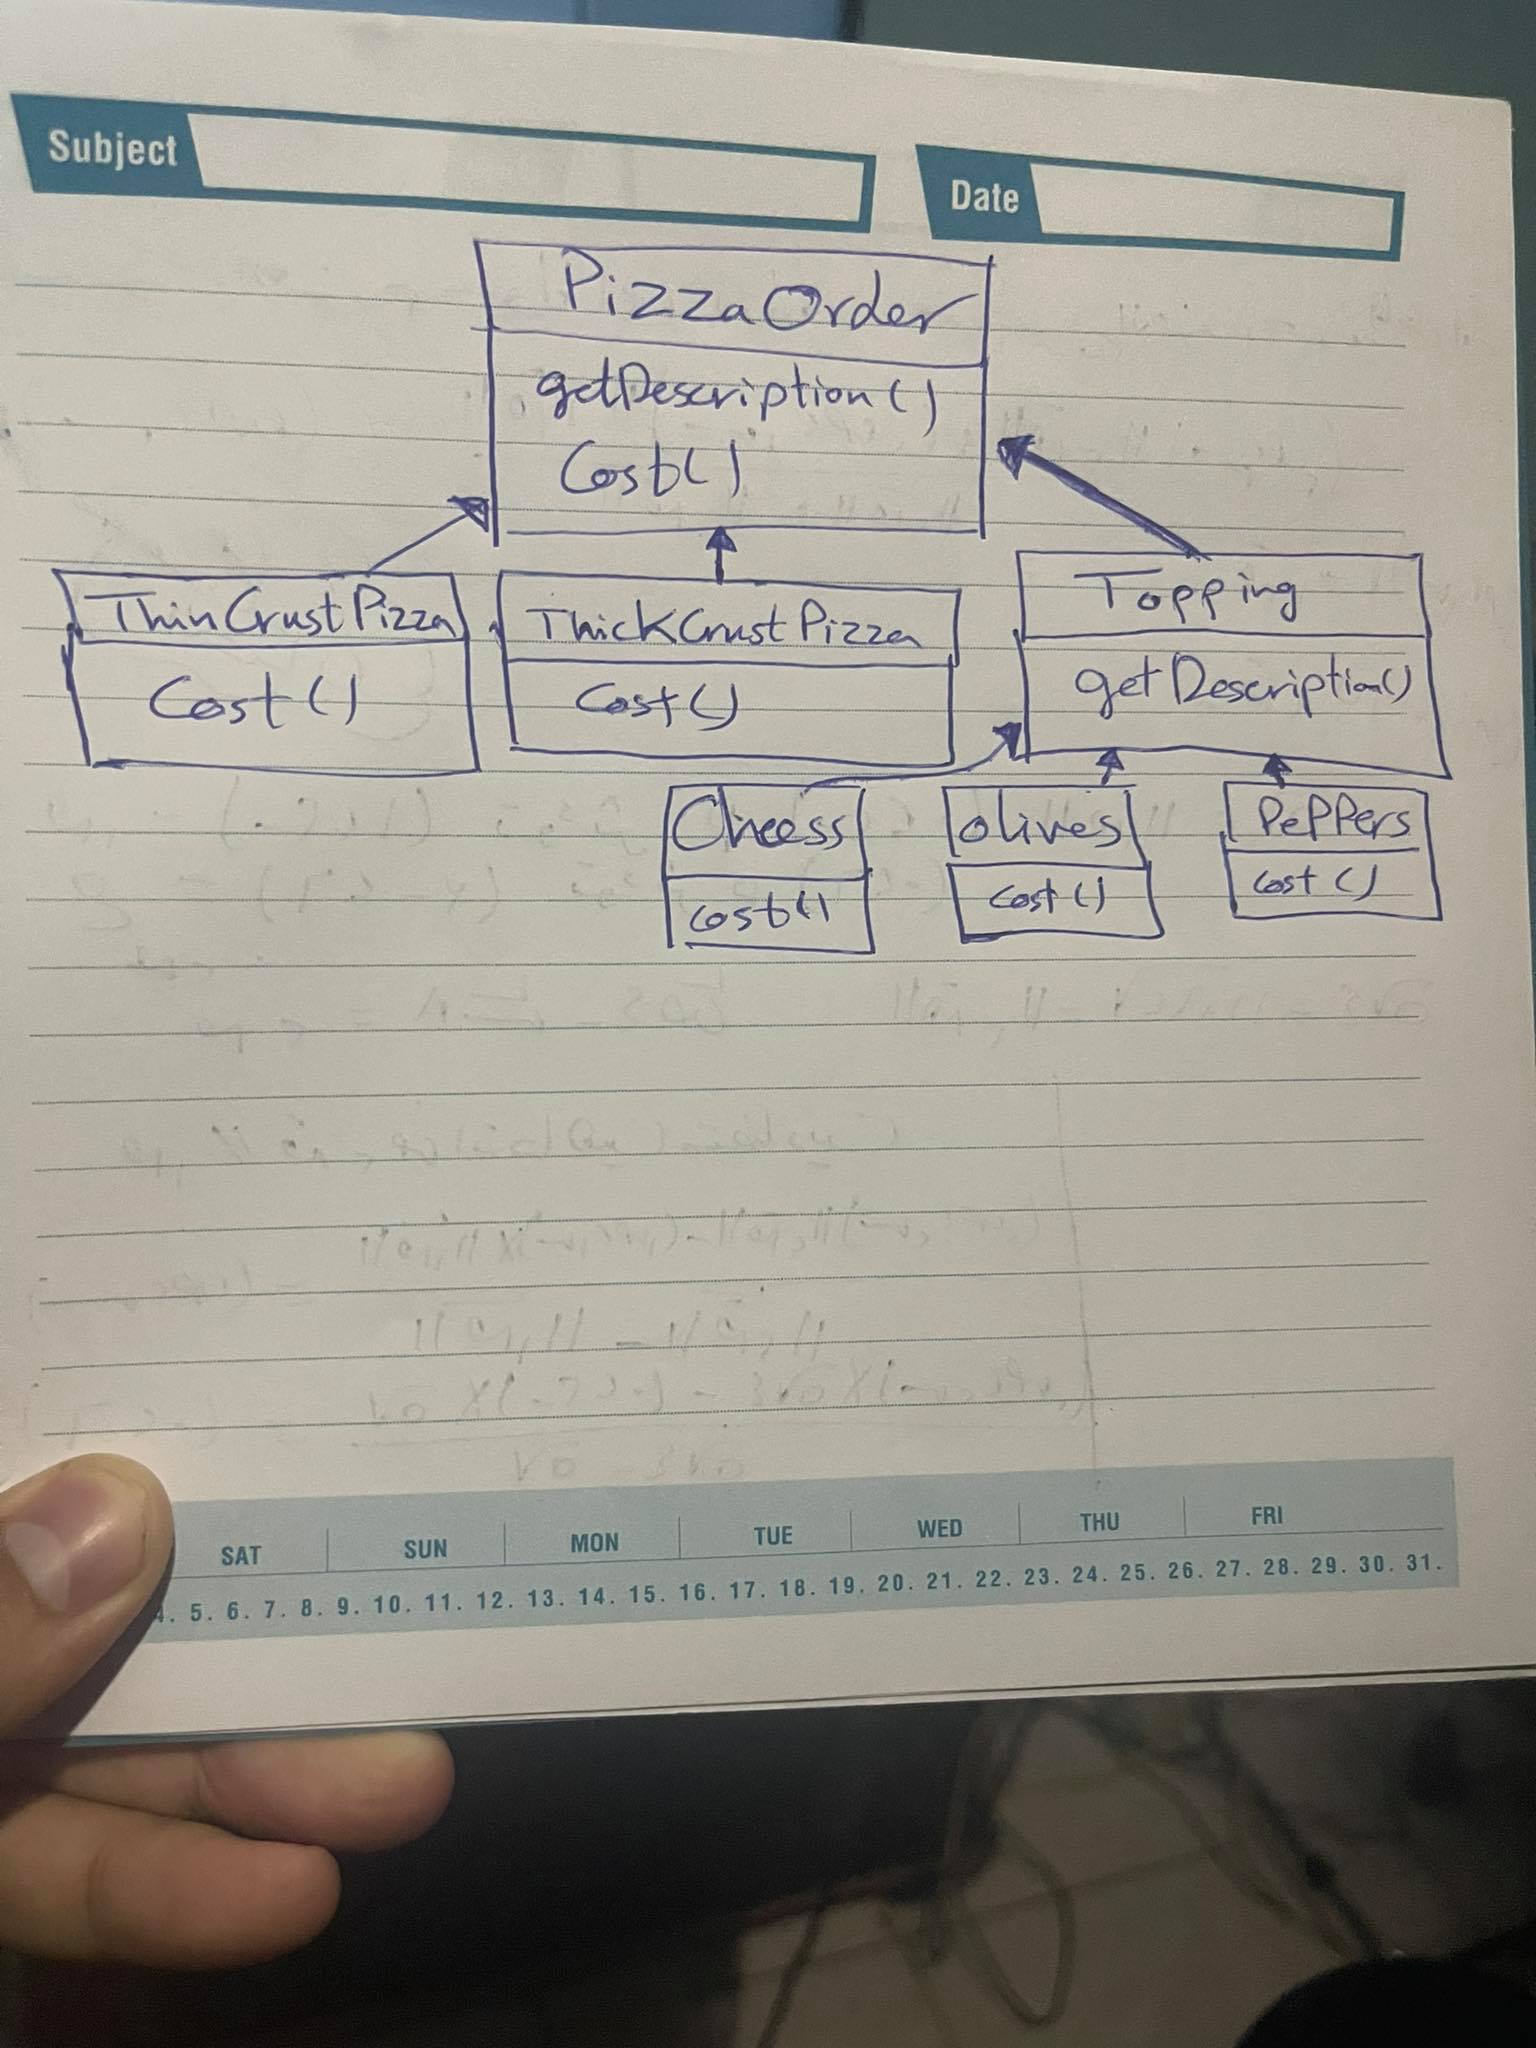 Subject
Date
PizzaOrder
getDescription()
Cost()
ThinCrustPizza
Cost()
ThickCrustPizza
Cost()
Topping
getDescription()
Cheess
cost()
olives
cost()
PePPers
cost()
SAT SUN MON TUE WED THU FRI
4. 5. 6. 7. 8. 9. 10. 11. 12. 13. 14. 15. 16. 17. 18. 19. 20. 21. 22. 23. 24. 25. 26. 27. 28. 29. 30. 31.